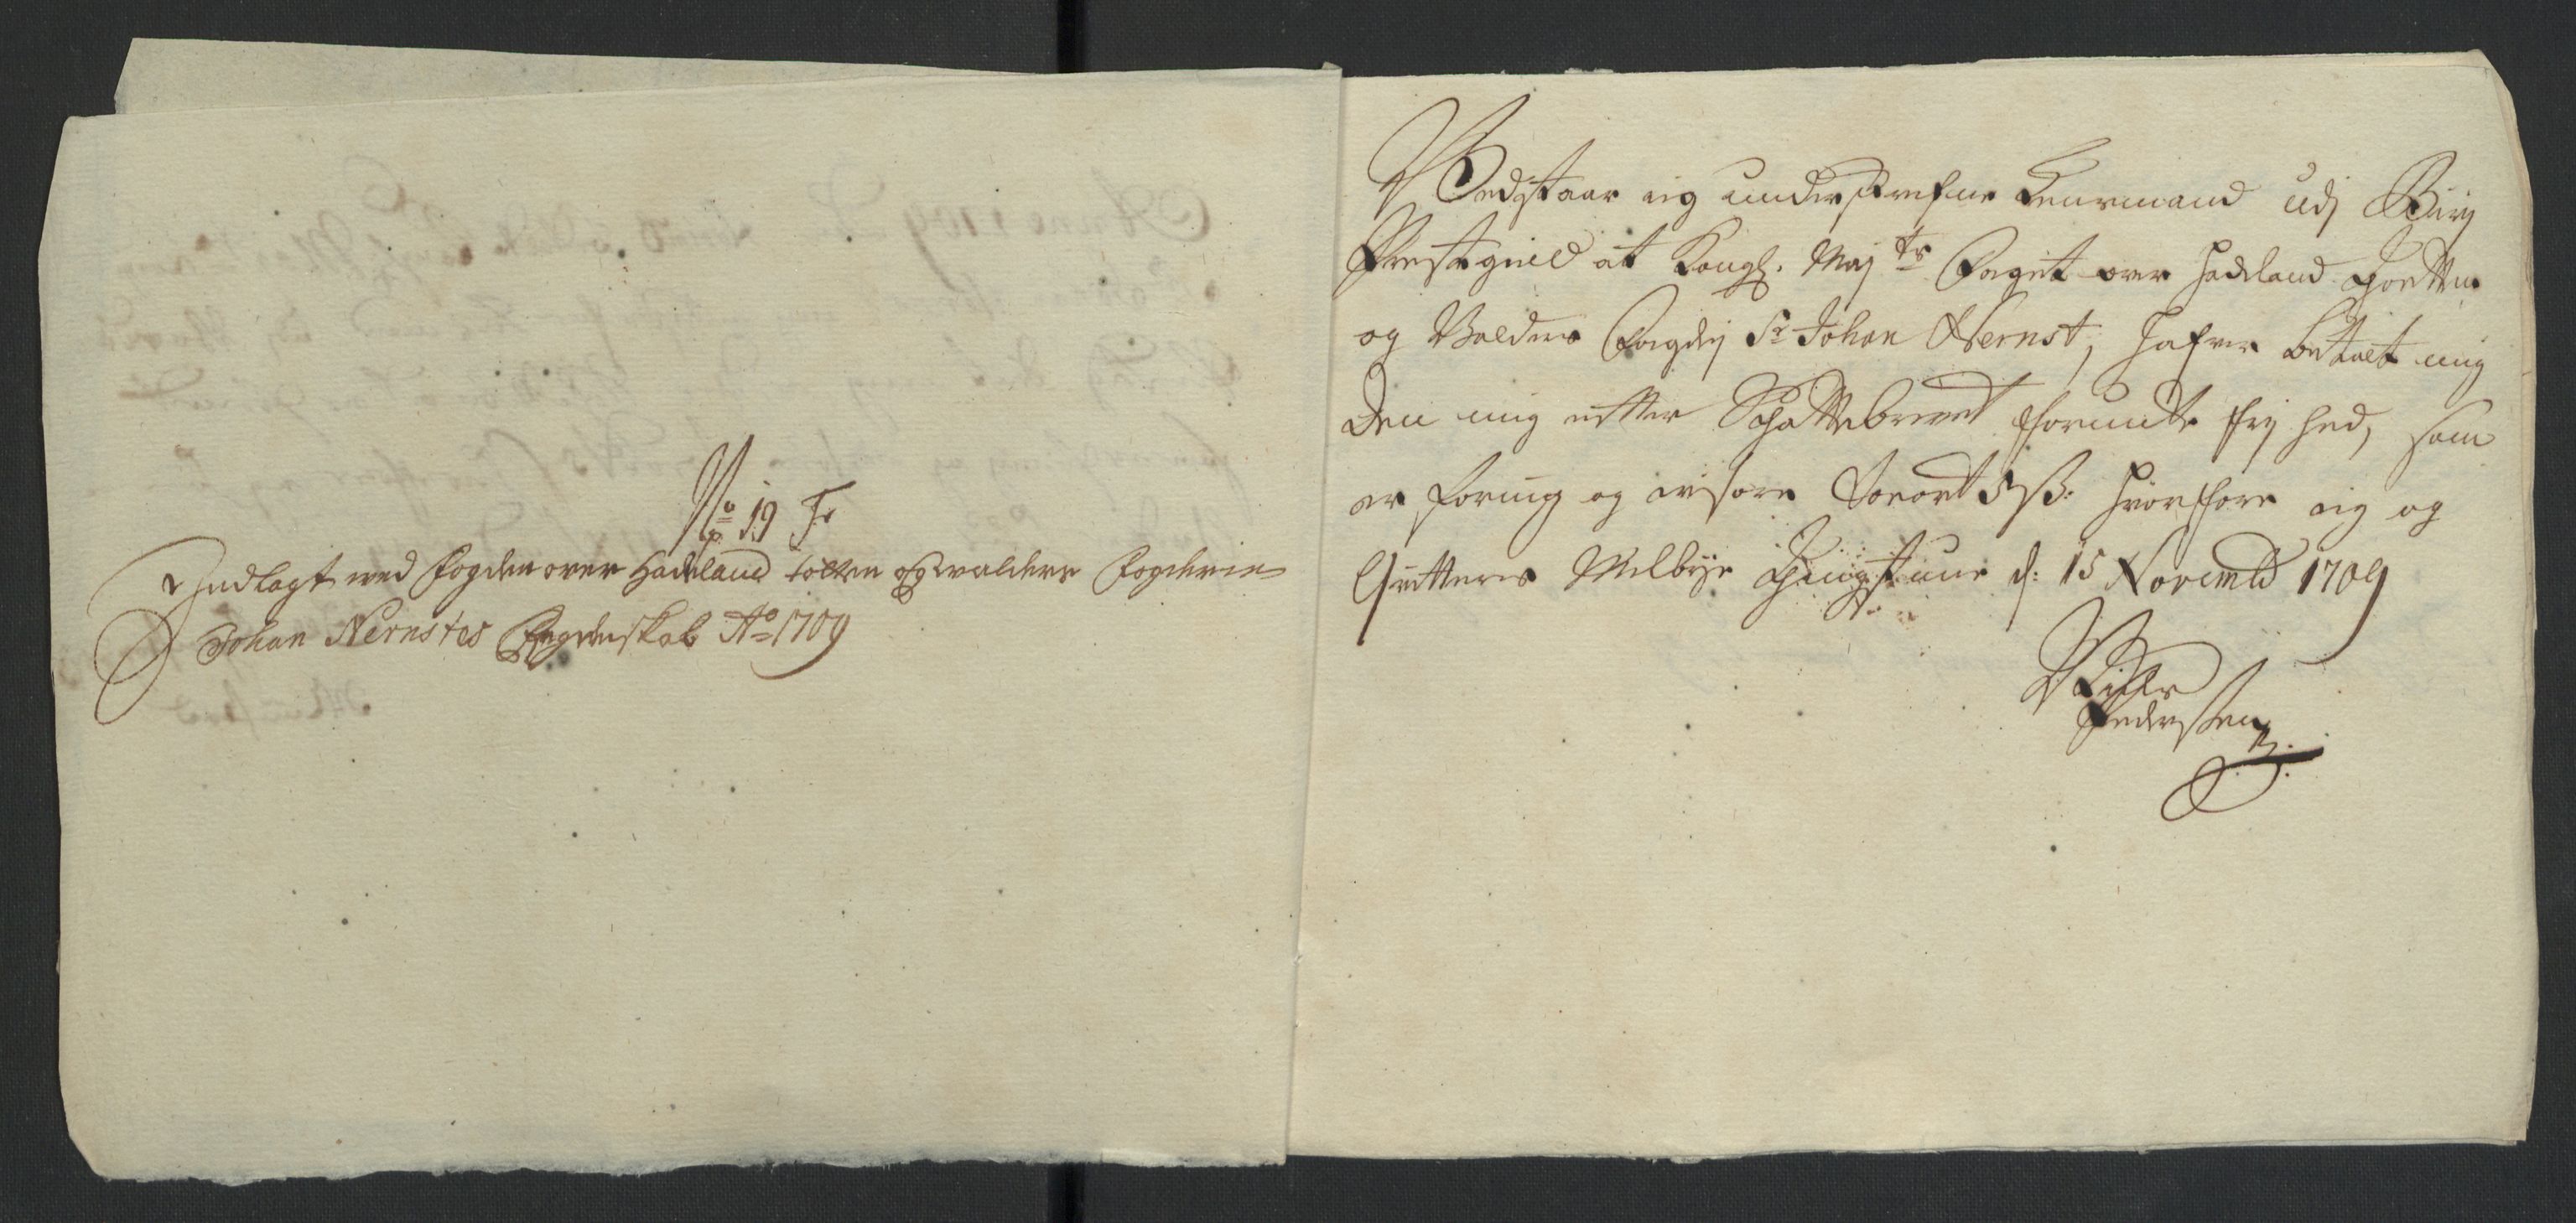 No 19 F
Indlagt med fogden over Hadeland totten og walders fogderie
Johan Nernstes Regenskab Ao 1709
Vedstaar ieg underskrefne Lensmand udj Birj
Prestegield at Kongl. Maj ts Foget over Hadeland Thotten
og Valders Fogdrj Sr Johan Nernst, hafver betalt mig
den mig efter Schattebrevet forundte frj hed, som
er foring og 5 ß. hvorfore ieg og
Qvitteres Melbye Tingstue d. 15 Novembr 1709
Peder
Pedersen